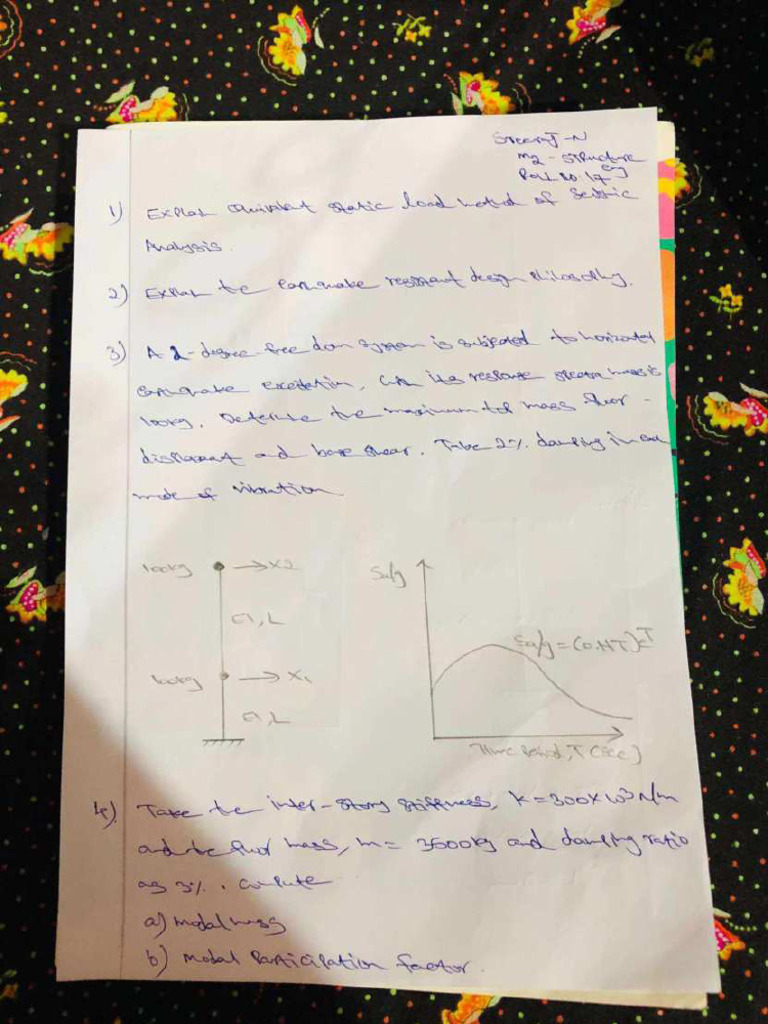 M2 - Structure
Roll no 17
1) Explain equivalent static load method of Seismic
Analysis.
2) Explain the earthquake resistant design philosophy.
3) A 2-degree freedom system is subjected to horizontal
earthquake excitation, with its response spectra mass is
100kg. Determine the maximum top mass
displacement and base shear. Take 2% damping in each
mode of vibration.
100kg → X2
EI, L
100kg → X1
EI, L
Sa/g
Time Period, T (Sec)
4) Take the inter-story stiffness, K = 300×10³ N/m
and the floor mass, m = 3500kg and damping ratio
as 3%. Compute
a) modal mass
b) Modal Participation factor.